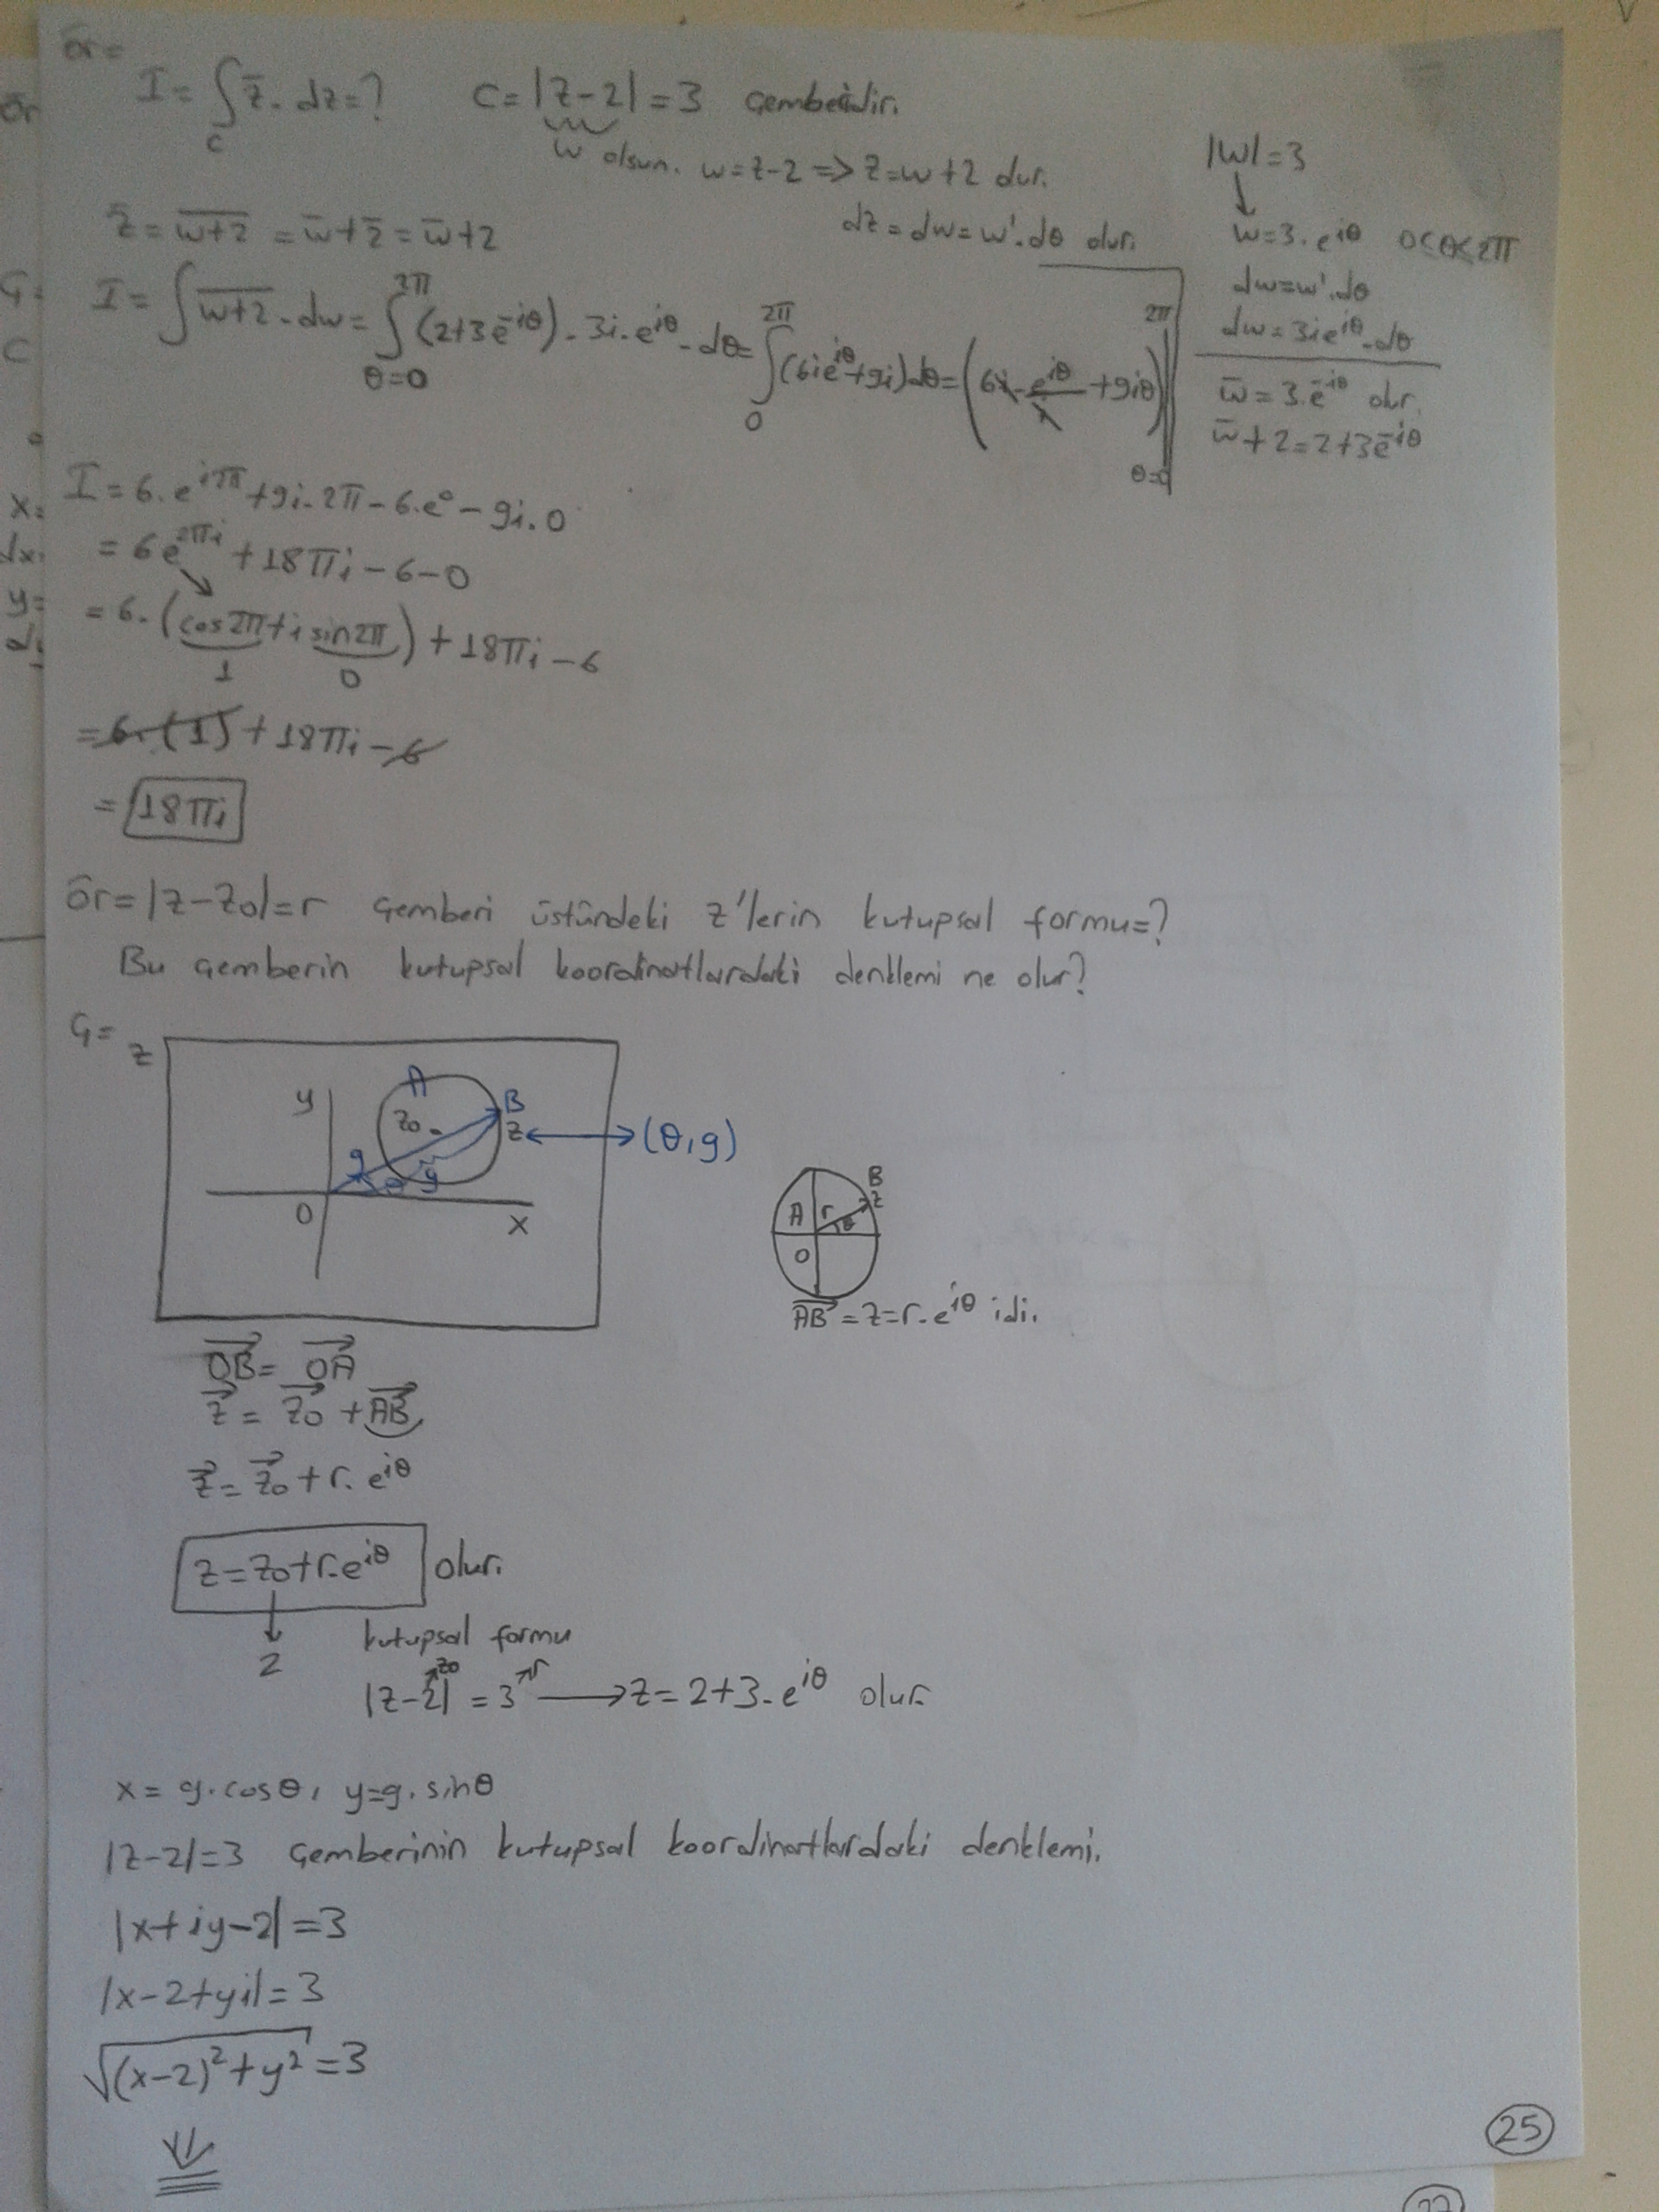 ör=
I = ∫_C z̄ . dz = ? C = |z-2| = 3 çemberidir.
w olsun. w = z-2 => z = w+2 dur.
|w| = 3
z̄ = \overline{w+2} = w̄ + \bar{2} = w̄+2
dz = dw = w'.dθ olur.
w = 3.e^{iθ} 0≤θ≤2π
dw = w'.dθ
dw = 3ie^{iθ}.dθ
I = ∫ \overline{w+2} . dw = ∫_{θ=0}^{2π} (2+3e^{-iθ}) . 3i.e^{iθ} . dθ = ∫_0^{2π} (6ie^{iθ}+9i)dθ = (6i . e^{iθ}/i + 9iθ) |_{θ=0}^{2π}
w̄ = 3.e^{-iθ} olur.
w̄+2 = 2+3e^{-iθ}
I = 6.e^{i2π} + 9i.2π - 6.e^0 - 9i.0
= 6e^{2πi} + 18πi - 6 - 0
= 6.(cos2π + i sin2π) + 18πi - 6
1 0
= 6.(1) + 18πi - 6
= 18πi
ör= |z-z0| = r çemberi üstündeki z'lerin kutupsal formu=?
Bu çemberin kutupsal koordinatlardaki denklemi ne olur?
Ç=
z
y A B
z0 z ↔ (θ, g)
g θ g
0 x
B
A r z
θ
0
\vec{AB} = z = r.e^{iθ} idi.
\vec{OB} = \vec{OA}
\vec{z} = \vec{z0} + \vec{AB}
\vec{z} = \vec{z0} + r.e^{iθ}
z = z0+r.e^{iθ} olur.
↓
2
kutupsal formu
z0 r
|z-2| = 3 → z = 2+3.e^{iθ} olur.
x = g.cosθ, y = g.sinθ
|z-2| = 3 çemberinin kutupsal koordinatlardaki denklemi.
|x+iy-2| = 3
|x-2+yi| = 3
√((x-2)²+y²) = 3
25
27